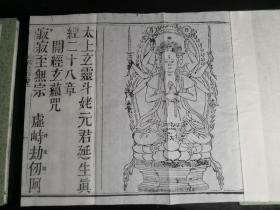 太上玄靈斗姥元君延生真
經二十八章
開經玄蘊咒
寂寂至無宗 虛峙劫仞阿